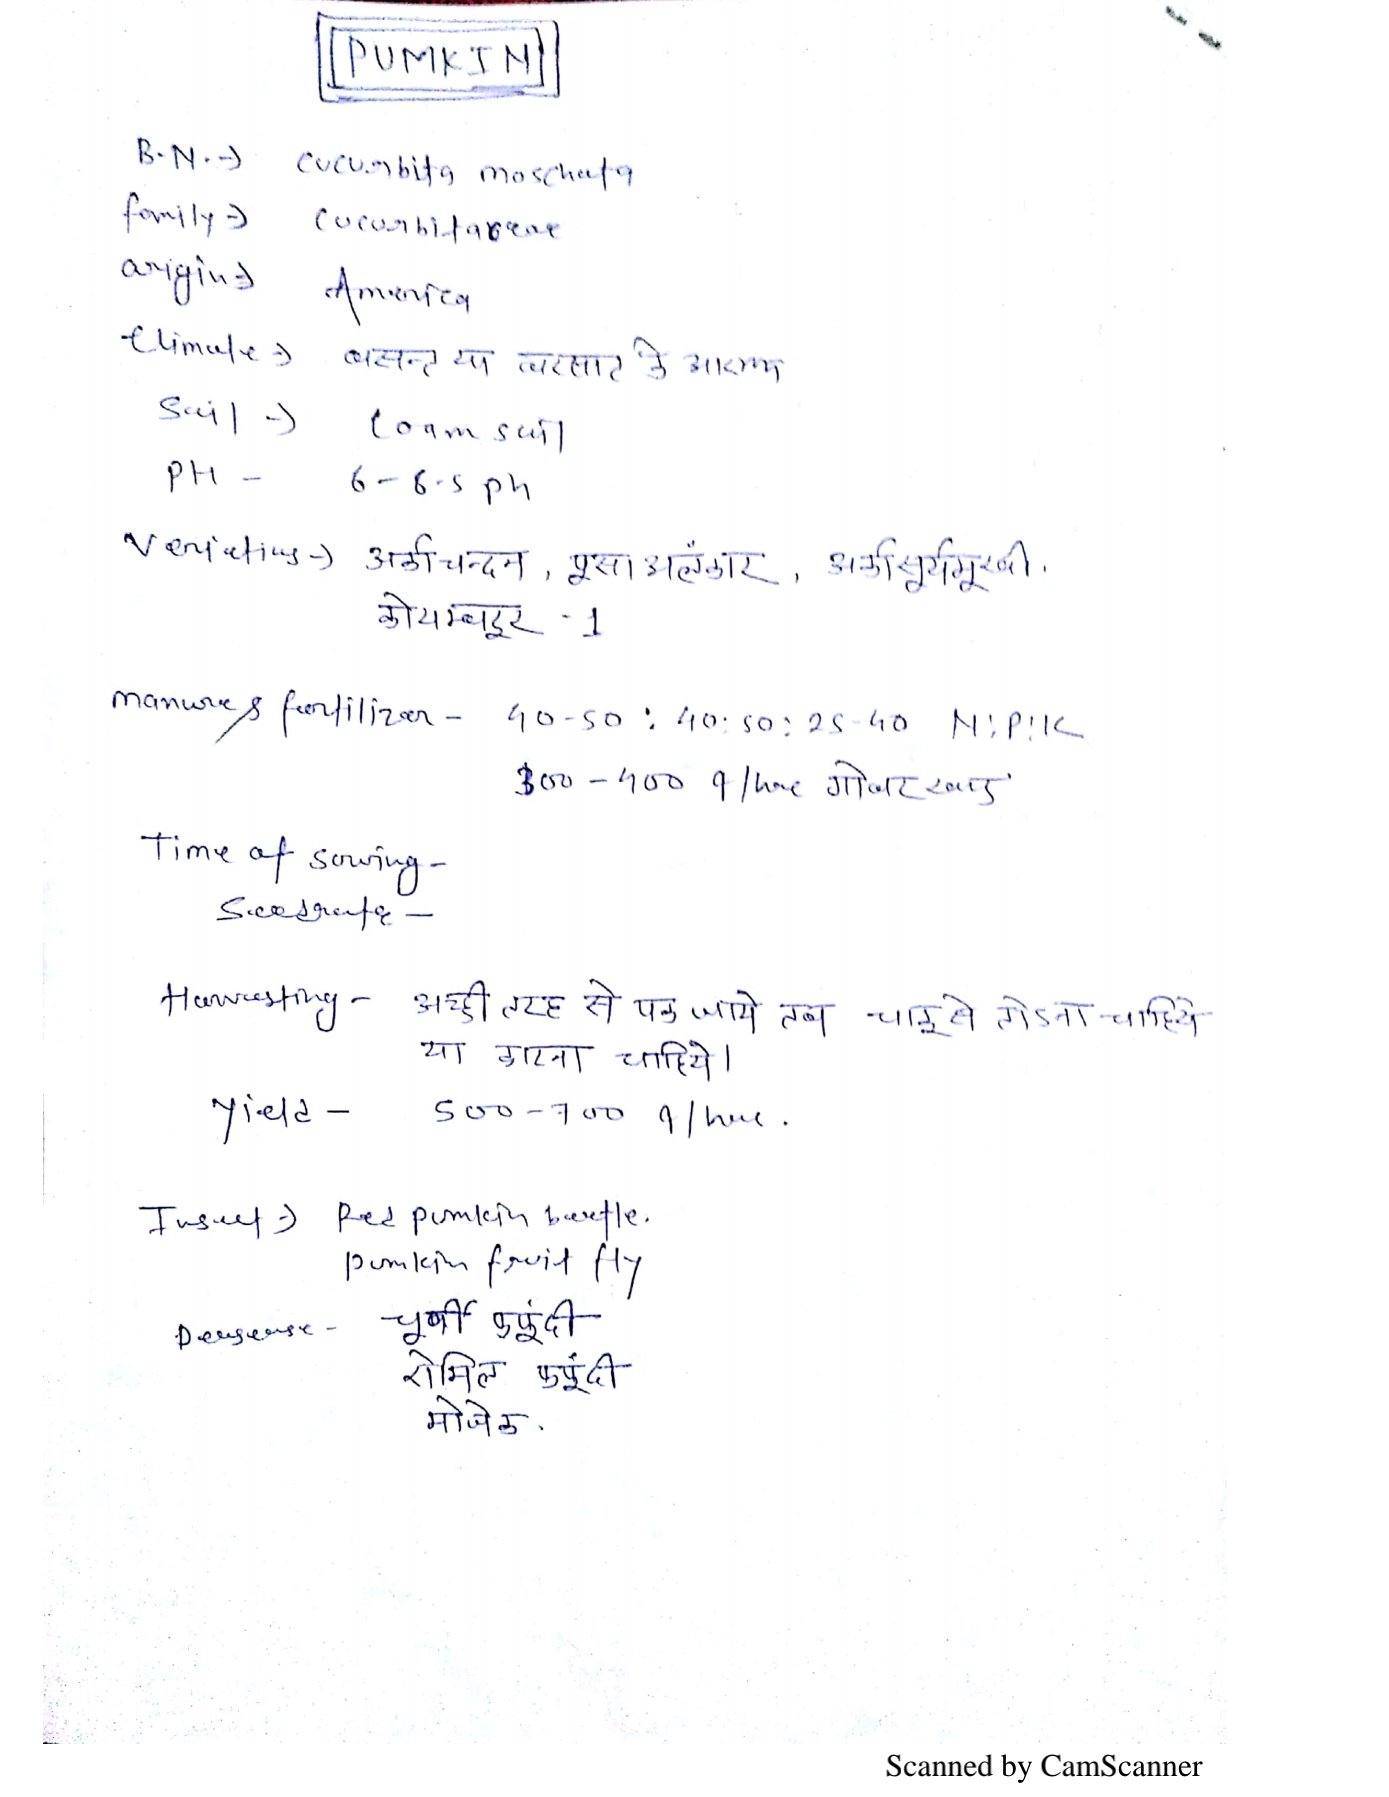 PUMKIN
B.N. → cucurbita moschata
family → cucurbitaceae
origin → America
Climate → बसन्त या बरसात के आरम्भ
Soil → Loam soil
PH - 6-6.5 ph
Verieties → अर्का चन्दन, पूसा अलंकार, अर्का सूर्यमूखी.
कोयम्बटूर - 1
manure & fertilizer - 40-50 : 40:50 : 25-40 N:P:K
300-400 q/hac गोबर खाद
Time of sowing -
Seedrate -
Harvesting - अच्छी तरह से पक जाये तब चाकू से तोडना चाहिये
या काटना चाहिये।
Yield - 500-700 q/hac.
Insect → Red pumkin beetle.
pumkin fruit fly
चूर्णी फफूंदी
रोमिल फफूंदी
मोजेक.
Scanned by CamScanner